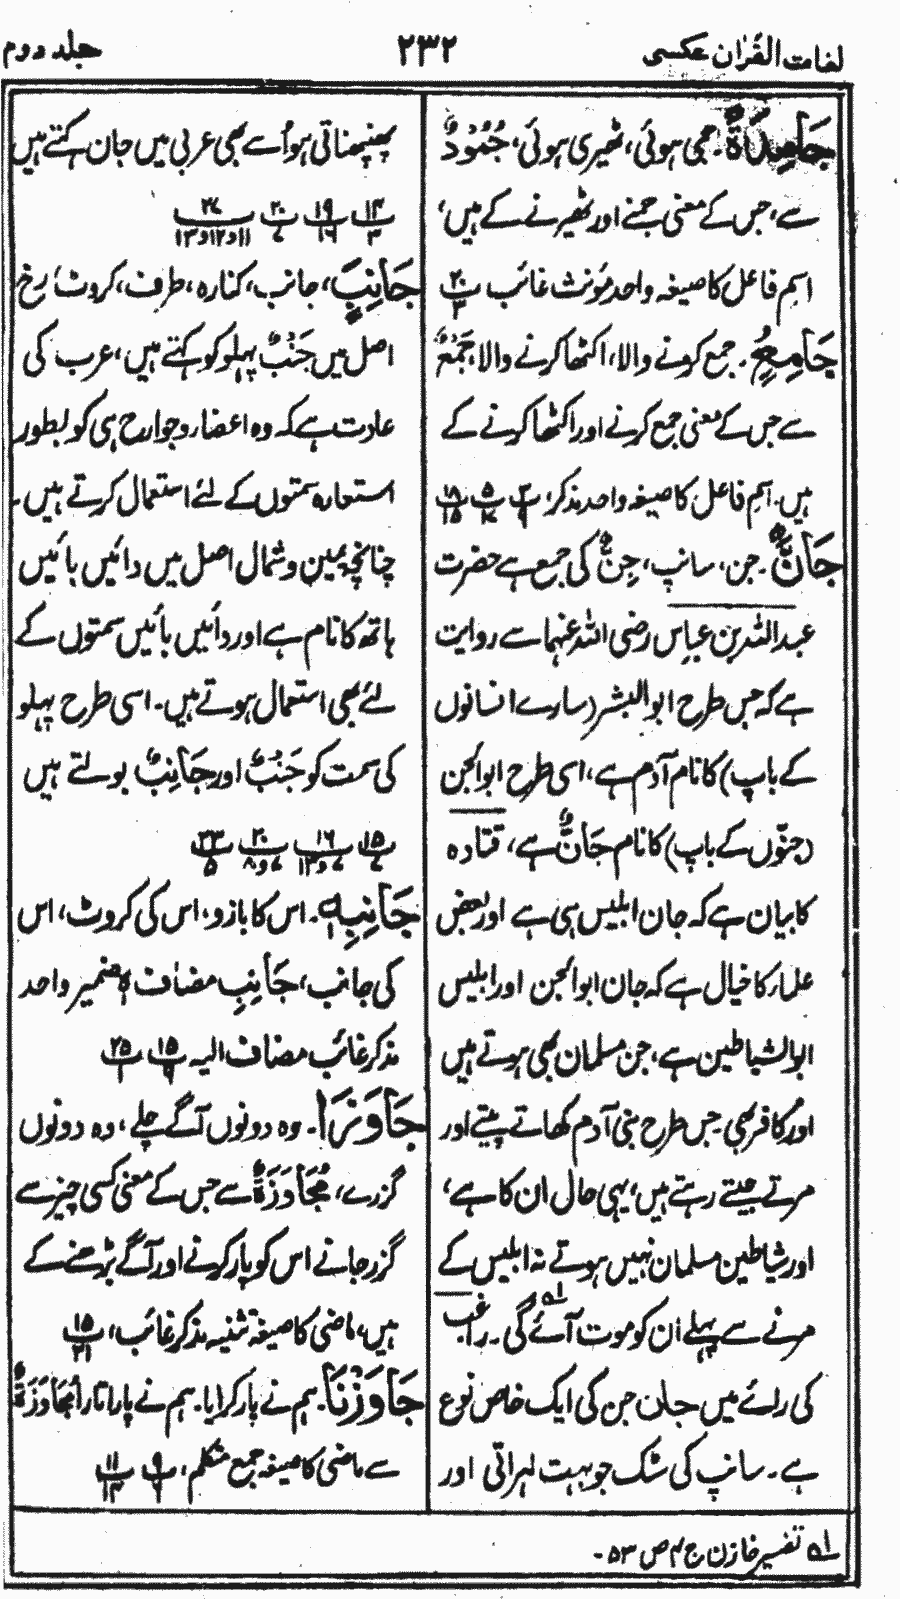 لغات القرآن عکسی
۲۳۲
جلد دوم
جَامِدَةً۔ جمی ہوئی، ٹھیری ہوئی، جُمُودٌ
سے، جس کے معنی جمنے اور ٹھیرنے کے ہیں،
اسم فاعل کا صیغہ واحد مؤنث غائب ۲۰/۳
جَامِعُ۔ جمع کرونے والا، اکٹھا کرنے والا، جَمْعٌ
سے جس کے معنی جمع کرنے اور اکٹھا کرنے کے
ہیں۔ اسم فاعل کا صیغہ واحد مذکر، ۳/۹ ۵/۱۷ ۱۸/۱۵
جَانٌّ۔ جن، سانپ، جِنٌّ کی جمع ہے حضرت
عبداللہ بن عباس رضی اللہ عنہما سے روایت
ہے کہ جس طرح ابوالبشر (سارے انسانوں
کے باپ) کا نام آدم ہے، اسی طرح ابوالجن
(جنّوں کے باپ) کا نام جَانٌّ ہے، قتادہ
کا بیان ہے کہ جان ابلیس ہی ہے اور بعض
علمار کا خیال ہے کہ جان ابوالجن اور ابلیس
ابوالشیاطین ہے، جن مسلمان بھی ہوتے ہیں
اور کافر بھی جس طرح بنی آدم کھاتے پیتے اور
مرتے جیتے رہتے ہیں، یہی حال ان کا ہے،
اور شیاطین مسلمان نہیں ہوتے نہ ابلیس کے
مرنے سے پہلے اُن کو موت آئے گی۔ راغب
کی رائے میں جان جن کی ایک خاص نوع
ہے۔ سانپ کی شک جو بہت لہراتی اور
پھنپھناتی ہو اُسے بھی عربی میں جان کہتے ہیں
۱۴/۳ ۱۹/۱۶ ۲۰/۷ ۲۷/۱۱و۱۲و۱۳
جَانِبٍ، جانب، کنارہ، طرف، کروٹ، رخ
اصل میں جَنْبٌ پہلو کو کہتے ہیں، عرب کی
عادت ہے کہ وہ اعضار و جوارح ہی کو بطور
استعارہ سمتوں کے لئے استعمال کرتے ہیں۔
چنانچہ یمین و شمال اصل میں دائیں بائیں
ہاتھ کا نام ہے اور دائیں بائیں سمتوں کے
لئے بھی استعمال ہوتے ہیں۔ اسی طرح پہلو
کی سمت کو جَنْبٌ اور جَانِبٌ بولتے ہیں
۱۵/۷ ۱۶/۷و۱۳ ۲۰/۷و۸ ۲۳/۵
جَانِبِہٖ۔ اس کا بازو، اس کی کروٹ، اس
کی جانب، جَانِبِ مضاف ہٖ ضمیر واحد
مذکر غائب مضاف الیہ ۱۵/۹ ۲۵/۱
جَاوَزَا۔ وہ دونوں آگے چلے، وہ دونوں
گزرے، مُجَاوَزَةٌ سے جس کے معنی کسی چیز سے
گزر جانے اس کو پار کرنے اور آگے بڑھنے کے
ہیں، ماضی کا صیغہ تثنیہ مذکر غائب، ۱۵/۲۱
جَاوَزْنَا۔ ہم نے پار کرایا۔ ہم نے پار اتارا مُجَاوَزَةٌ
سے ماضی کا صیغہ جمع متکلم، ۹/۶ ۱۱/۱۴
۱ہ تفسیر خازن ج ۴ ص ۵۳۔